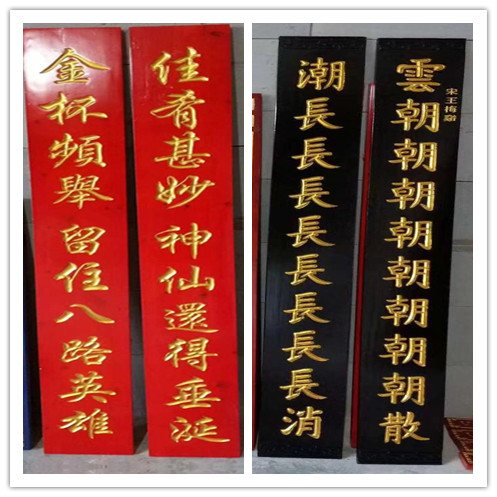 佳肴甚妙神仙還得垂涎
金杯頻舉留住八路英雄
雲朝朝朝朝朝朝朝朝散
宋王梅谿
潮長長長長長長長長消